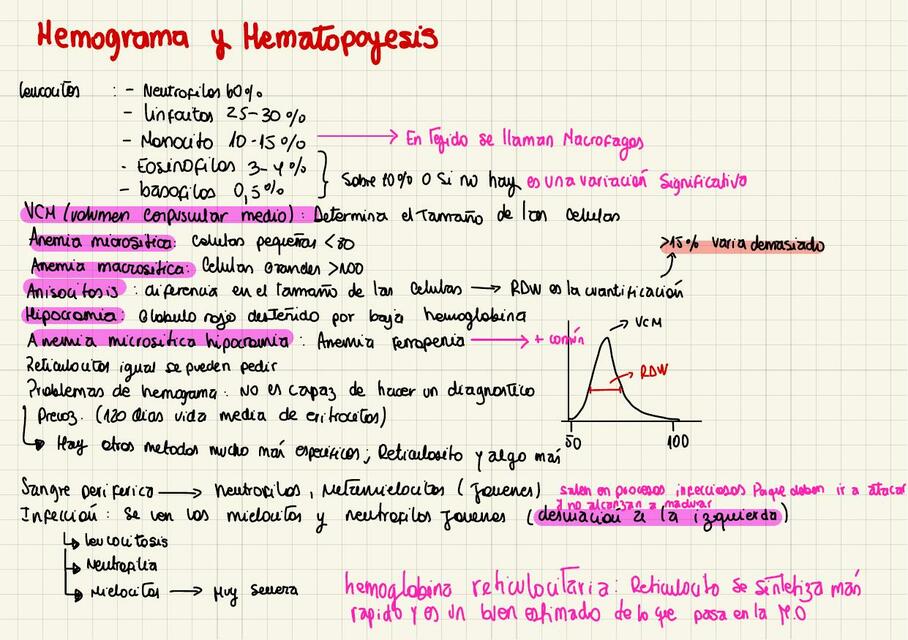 Hemograma y Hematopoyesis
leucocitos : - Neutrofilos 60%
- linfocitos 25-30%
- Monocito 10-15% → En Tejido se llaman Macrofagos
- Eosinofilos 3-4%
- basofilos 0,5%
Sobre 10% o si no hay es una variación significativa
VCM (volumen corpuscular medio) : Determina el Tamaño de las celulas
Anemia micrositica: Celulas pequeñas <80
Anemia macrositica: Celulas Grandes >100
>15% varia demasiado
Anisocitosis : diferencia en el Tamaño de las celulas → RDW es la cuantificación
Hipocromia: Globulo rojo desteñido por baja hemoglobina
Anemia micrositica hipocromia : Anemia ferropenia → + común
VCM
RDW
50 100
Reticulocitos igual se pueden pedir
Problemas de hemograma: no es capaz de hacer un diagnostico
Precoz. (120 dias vida media de eritrocitos)
Hay otros metodos mucho más especificos; Reticulosito y algo más
Sangre periferica → neutrofilos, Metamielocitos (Jovenes) salen en procesos infecciosos porque deben ir a atacar
y no alcanzan a madurar
Infección : Se ven los mielocitos y neutrofilos Jovenes (desviación a la izquierda)
leucocitosis
Neutrofilia
Mielocitos → Muy severa
hemoglobina reticulocitaria: Reticulocito se sintetiza más
rapido y es un buen estimado de lo que pasa en la M.O